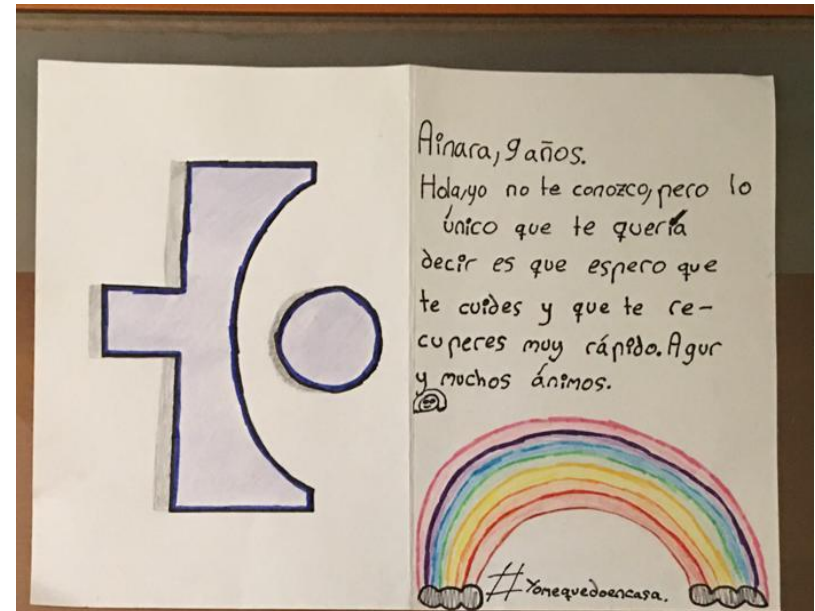 Ainara, 9 años.
Hola, yo no te conozco, pero lo
único que te quería
decir es que espero que
te cuides y que te re-
cuperes muy rápido. Agur
y muchos ánimos.
#Yomequedoencasa.